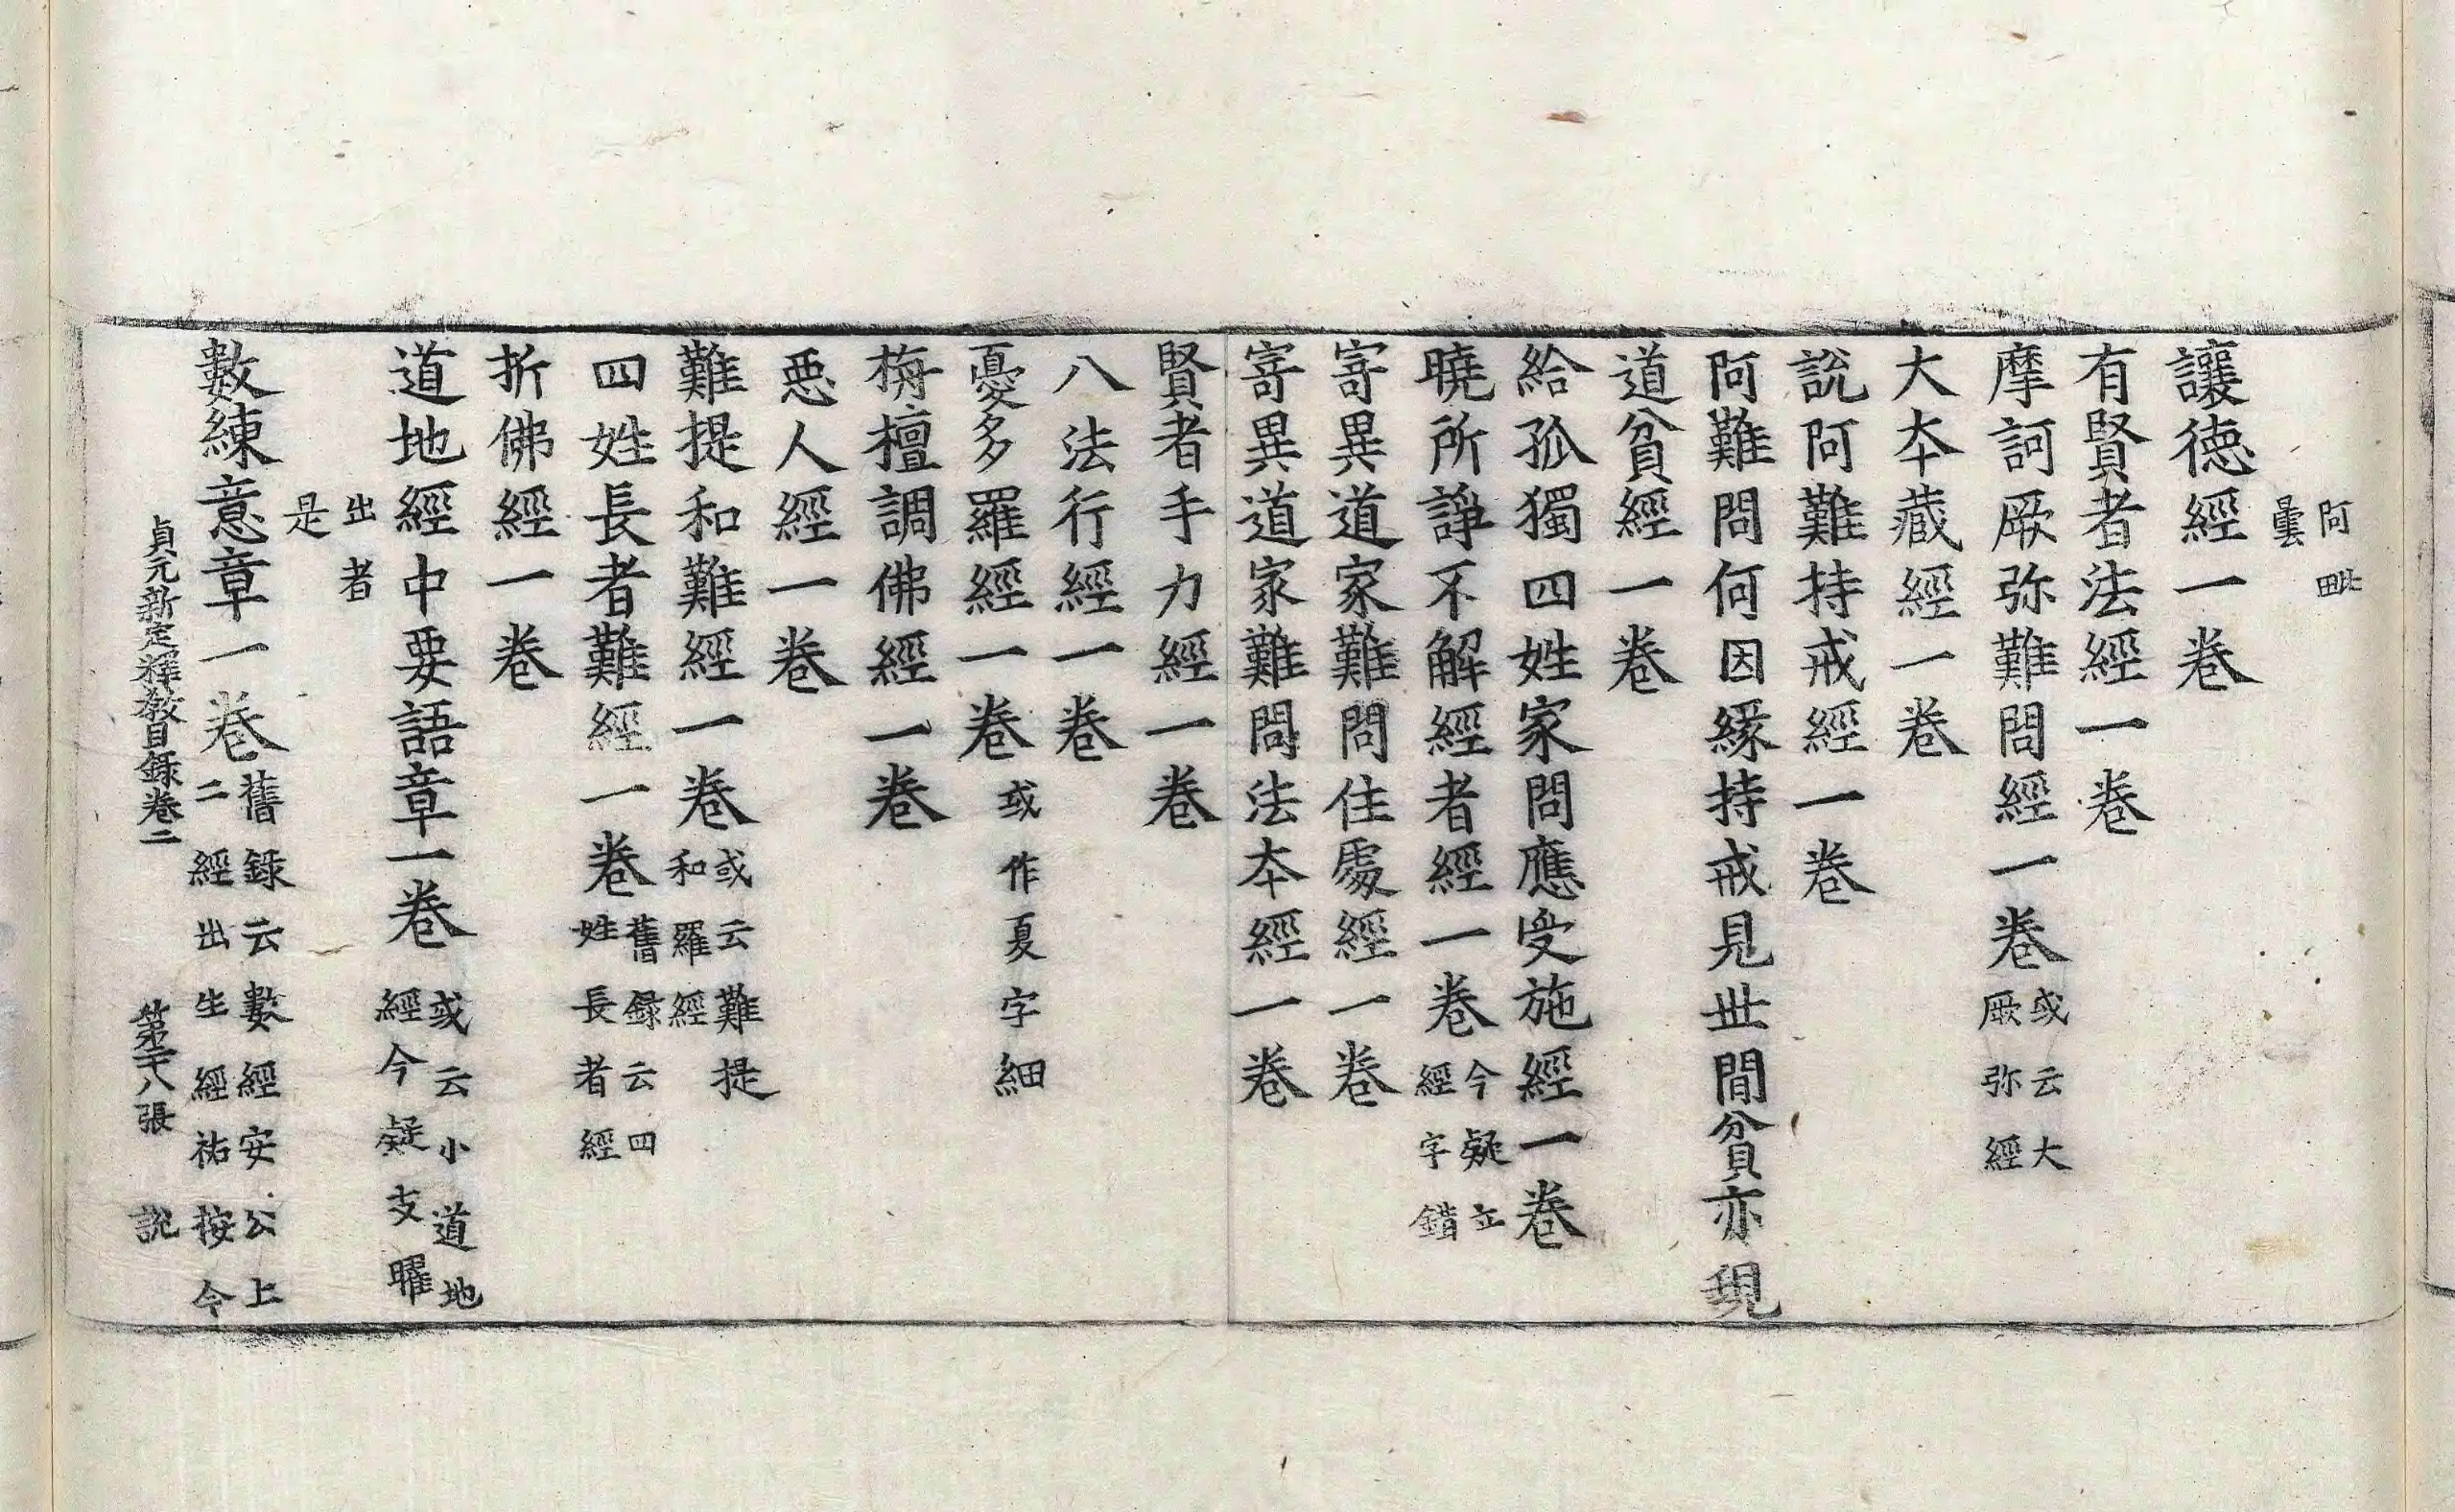 阿毗
曇
讓德經一卷
有賢者法經一卷
摩訶厥弥難問經一卷或云大
厥弥經
大本藏經一卷
說阿難持戒經一卷
阿難問何因緣持戒見世間貧亦現
道貧經一卷
給孤獨四姓家問應受施經一卷
曉所諍不解經者經一卷今疑立
經字錯
寄異道家難問住處經一卷
寄異道家難問法本經一卷
賢者手力經一卷
八法行經一卷
憂多羅經一卷或作夏字細
栴檀調佛經一卷
惡人經一卷
難提和難經一卷或云難提
和羅經
四姓長者難經一卷舊錄云四
姓長者經
折佛經一卷
道地經中要語章一卷或云小道地
經今疑支曜
出者
是
數練意章一卷舊錄云數經安公上
二經出生經祐按今
貞元新定釋教目錄卷二 第二十八張 說